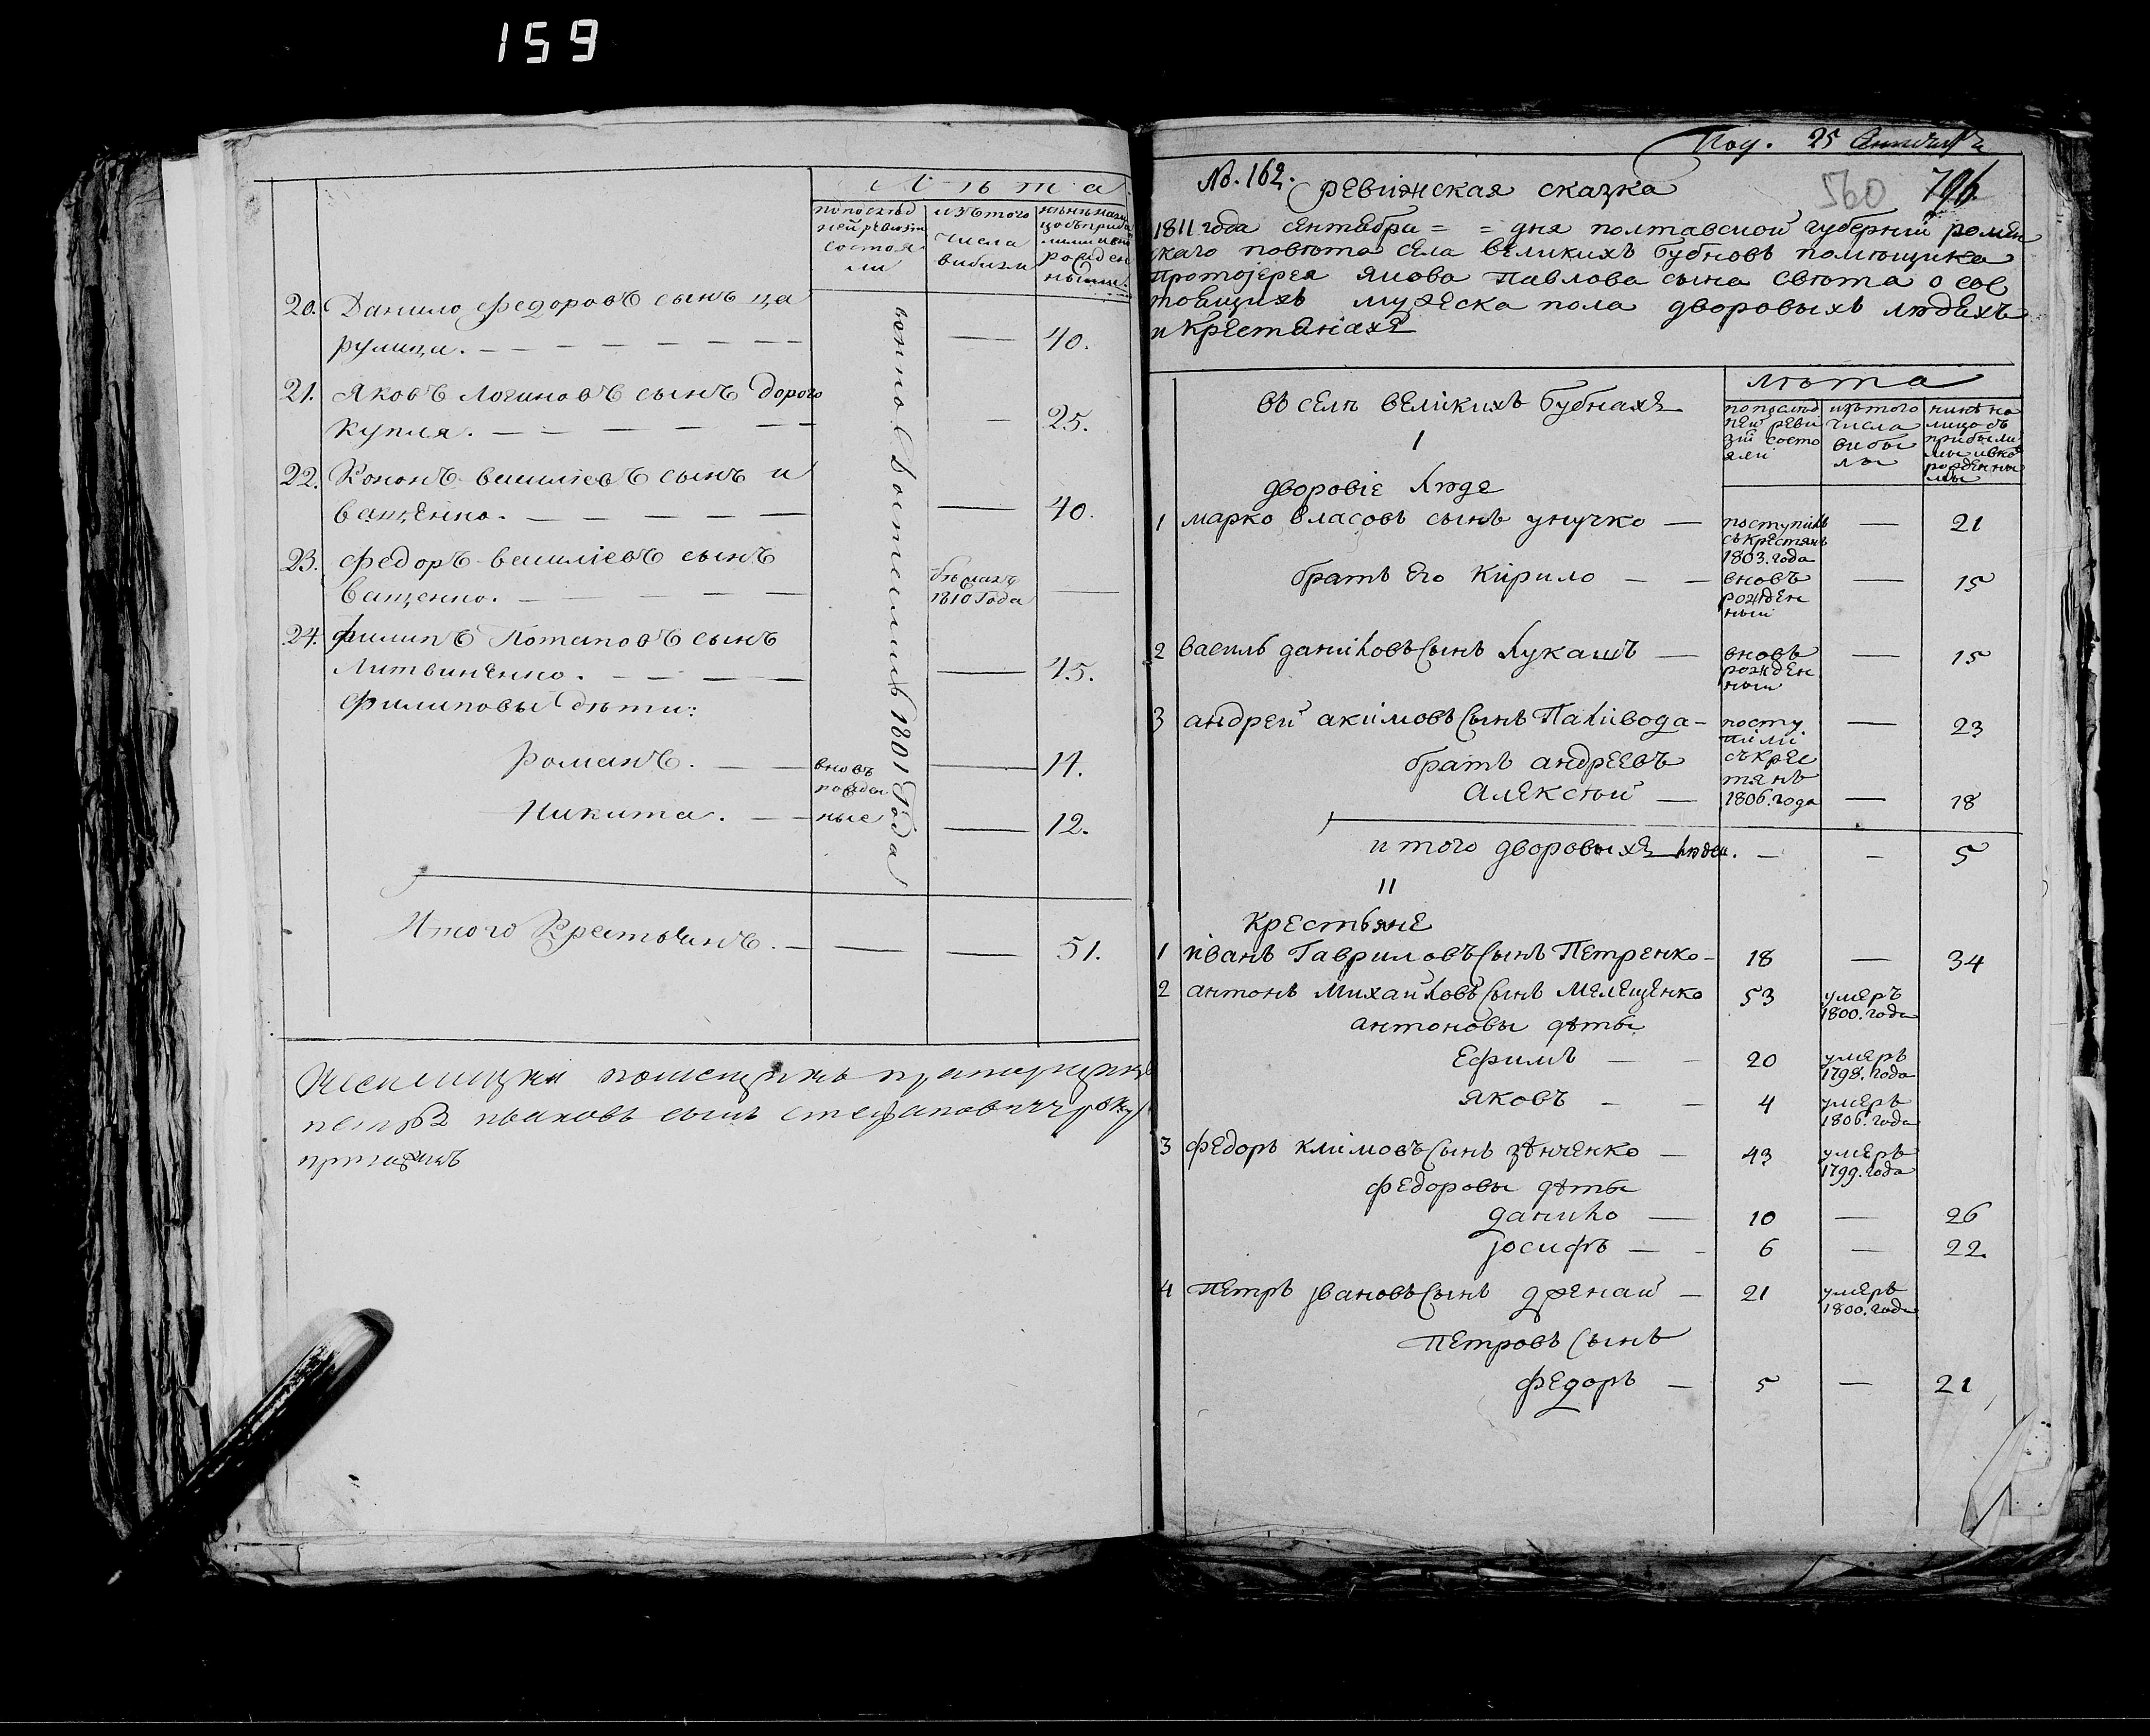 159
Лѣта
по послѣд
ней ревизіи
состоя
ли
изъ того
числа
вибили
20. Данило федоровъ сынъ ца
рулица. — 40.
21. Яковъ Логиновъ сынъ дорого
купля. — 25.
22. Кононъ василіевъ сынъ и
ващенко. — 40.
23. федоръ василіевъ сынъ
Іващенко. —
1810 Года
24. филипъ Потаповъ сынъ
Литвиненко. — 45.
Филиповы дѣти:
Романъ. — вновь
рожден 14.
Никита. — ные — 12.
1801 Года
Итого Крестьянъ. — — — 51.
сынъ
Под. 25 Сентября
No. 162. ревижская сказка 560 796
1811 года сентября = = дня полтавской губерний ромен
скаго повѣта села великихъ бубновъ помѣщика
протоіерея якова Павлова сына свѣта о сос
тоящихъ мужеска пола дворовыхъ людехъ
и крестянахъ
лѣта
въ селѣ великихъ бубнахъ
по послѣд
ней реви
зій состо
яли
изъ того
числа
вибы
лы
нинѣ на
лицо съ
прибыли
мы и вно
рожденны
мы
I
дворовіе люде
1 марко власовъ сынъ унучко — поступилъ — 21
съ крестянъ
1803. года
братъ его Кирило — — вновь — 15
рожден
ный
2 василь даниловъ сынъ Лукашъ — вновь — 15
рожден
ный
3 андрей акимовъ сынъ Паливода — посту — 23
пили
братъ андреевъ съ крес
тянъ
Алексѣй — 1806. года — 18
итого дворовыхъ людей. — — 5
II
крестьяне
1 иванъ Гавриловъ сынъ Петренко — 18 — 34
2 антонъ Михайловъ сынъ Мелещенко 53 умеръ
1800. года
антоновы дѣты
Ефимъ — — 20 умеръ
1798. года
яковъ — — 4 умеръ
1806. года
3 федоръ климовъ сынъ зѣнченко — 43 умеръ
1799. года
федоровы дѣты
данило — 10 — 26
іосифъ — — 6 — 22.
4 Петръ івановъ сынъ дженай — 21 умеръ
1800. года
Петровъ сынъ
федоръ — 5 — 21